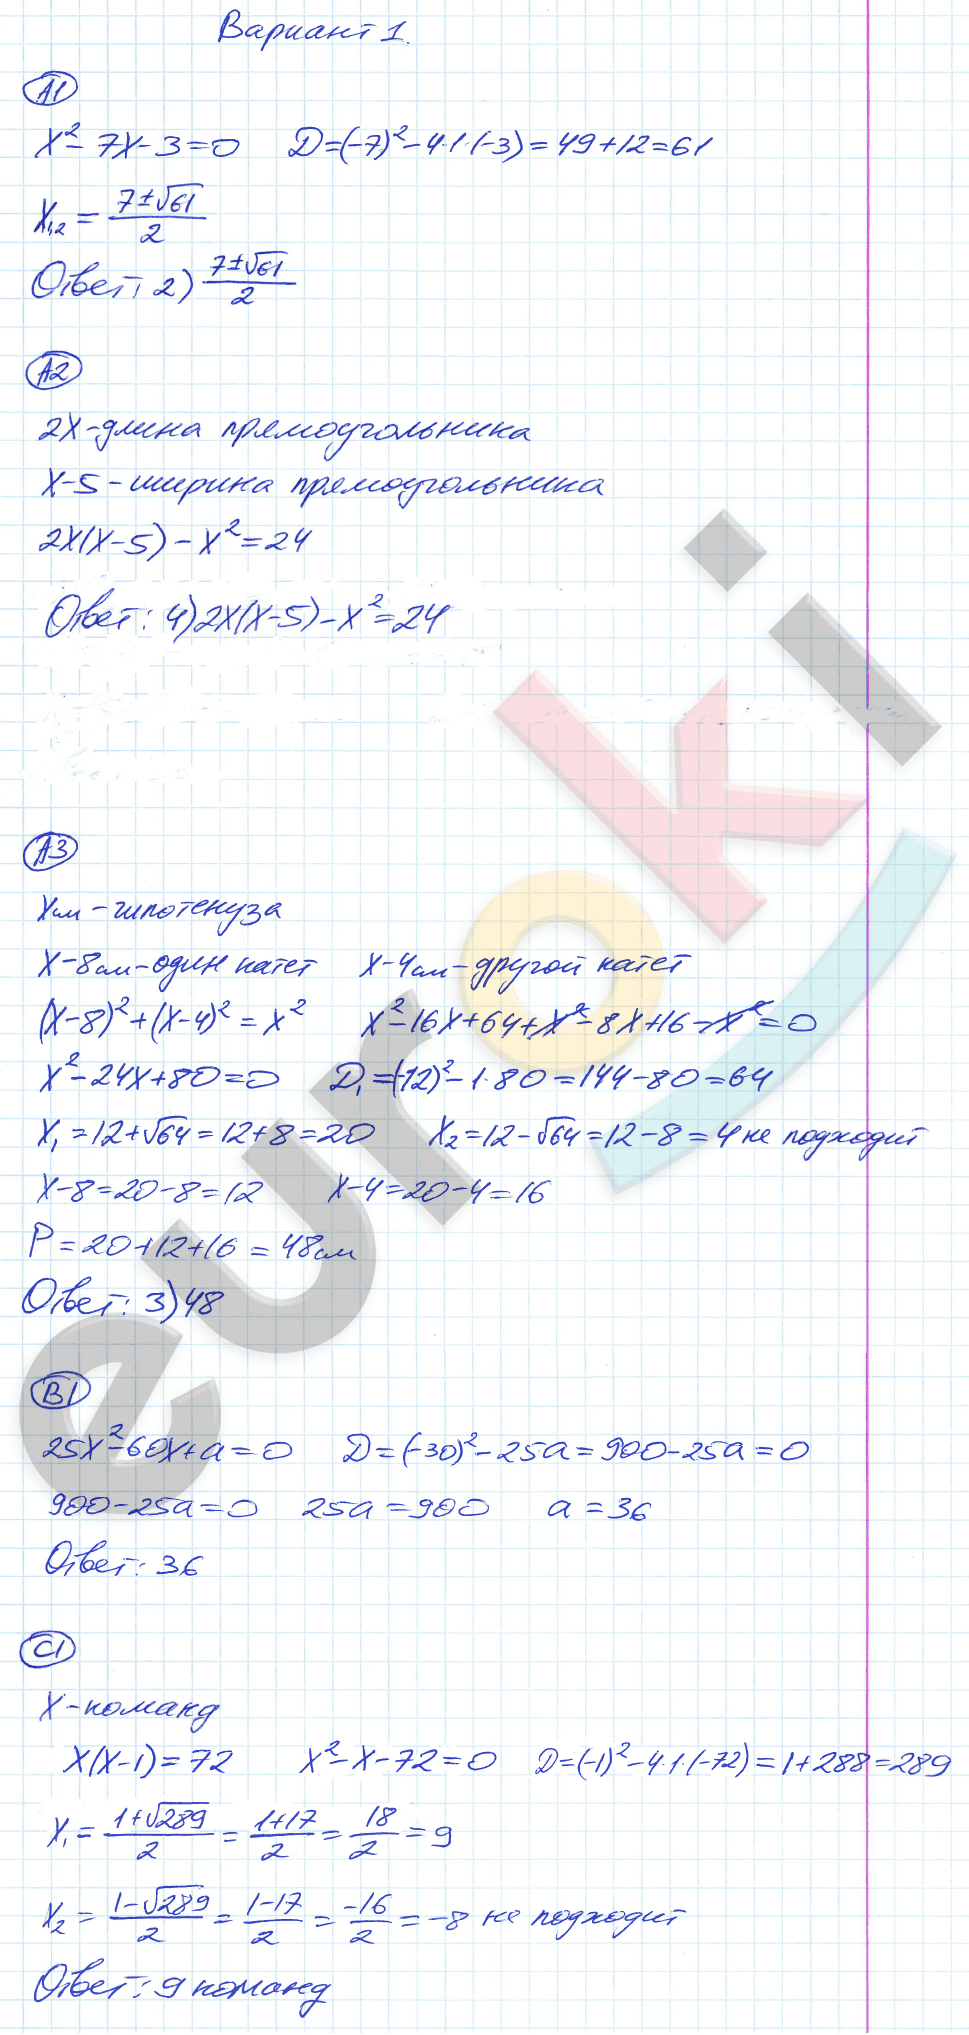 Вариант 1.
А1
x² - 7x - 3 = 0 D = (-7)² - 4·1·(-3) = 49 + 12 = 61
x₁,₂ = (7 ± √61)/2
Ответ: 2) (7 ± √61)/2
А2
2x - длина прямоугольника
x - 5 - ширина прямоугольника
2x(x - 5) - x² = 24
Ответ: 4) 2x(x - 5) - x² = 24
А3
x см - гипотенуза
x - 8 см - один катет x - 4 см - другой катет
(x - 8)² + (x - 4)² = x² x² - 16x + 64 + x² - 8x + 16 - x² = 0
x² - 24x + 80 = 0 D₁ = (-12)² - 1·80 = 144 - 80 = 64
x₁ = 12 + √64 = 12 + 8 = 20 x₂ = 12 - √64 = 12 - 8 = 4 не подходит
x - 8 = 20 - 8 = 12 x - 4 = 20 - 4 = 16
P = 20 + 12 + 16 = 48 см
Ответ: 3) 48
В1
25x² - 60x + a = 0 D = (-30)² - 25a = 900 - 25a = 0
900 - 25a = 0 25a = 900 a = 36
Ответ: 36
С1
x - команд
x(x - 1) = 72 x² - x - 72 = 0 D = (-1)² - 4·1·(-72) = 1 + 288 = 289
x₁ = (1 + √289)/2 = (1 + 17)/2 = 18/2 = 9
x₂ = (1 - √289)/2 = (1 - 17)/2 = -16/2 = -8 не подходит
Ответ: 9 команд
euroki